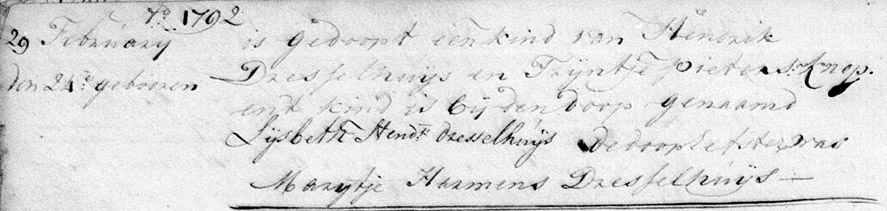 Ao 1792
29 Februarij is gedoopt een kind van Hendrik
den 24e gebooren Dresselhuijs en Trijntje Pieters Knop.
ent kind is bij den doop genaamd
Lijsbeth Hendr Dresselhuijs de doophefster was
Marytje Harmens Dresselhuijs